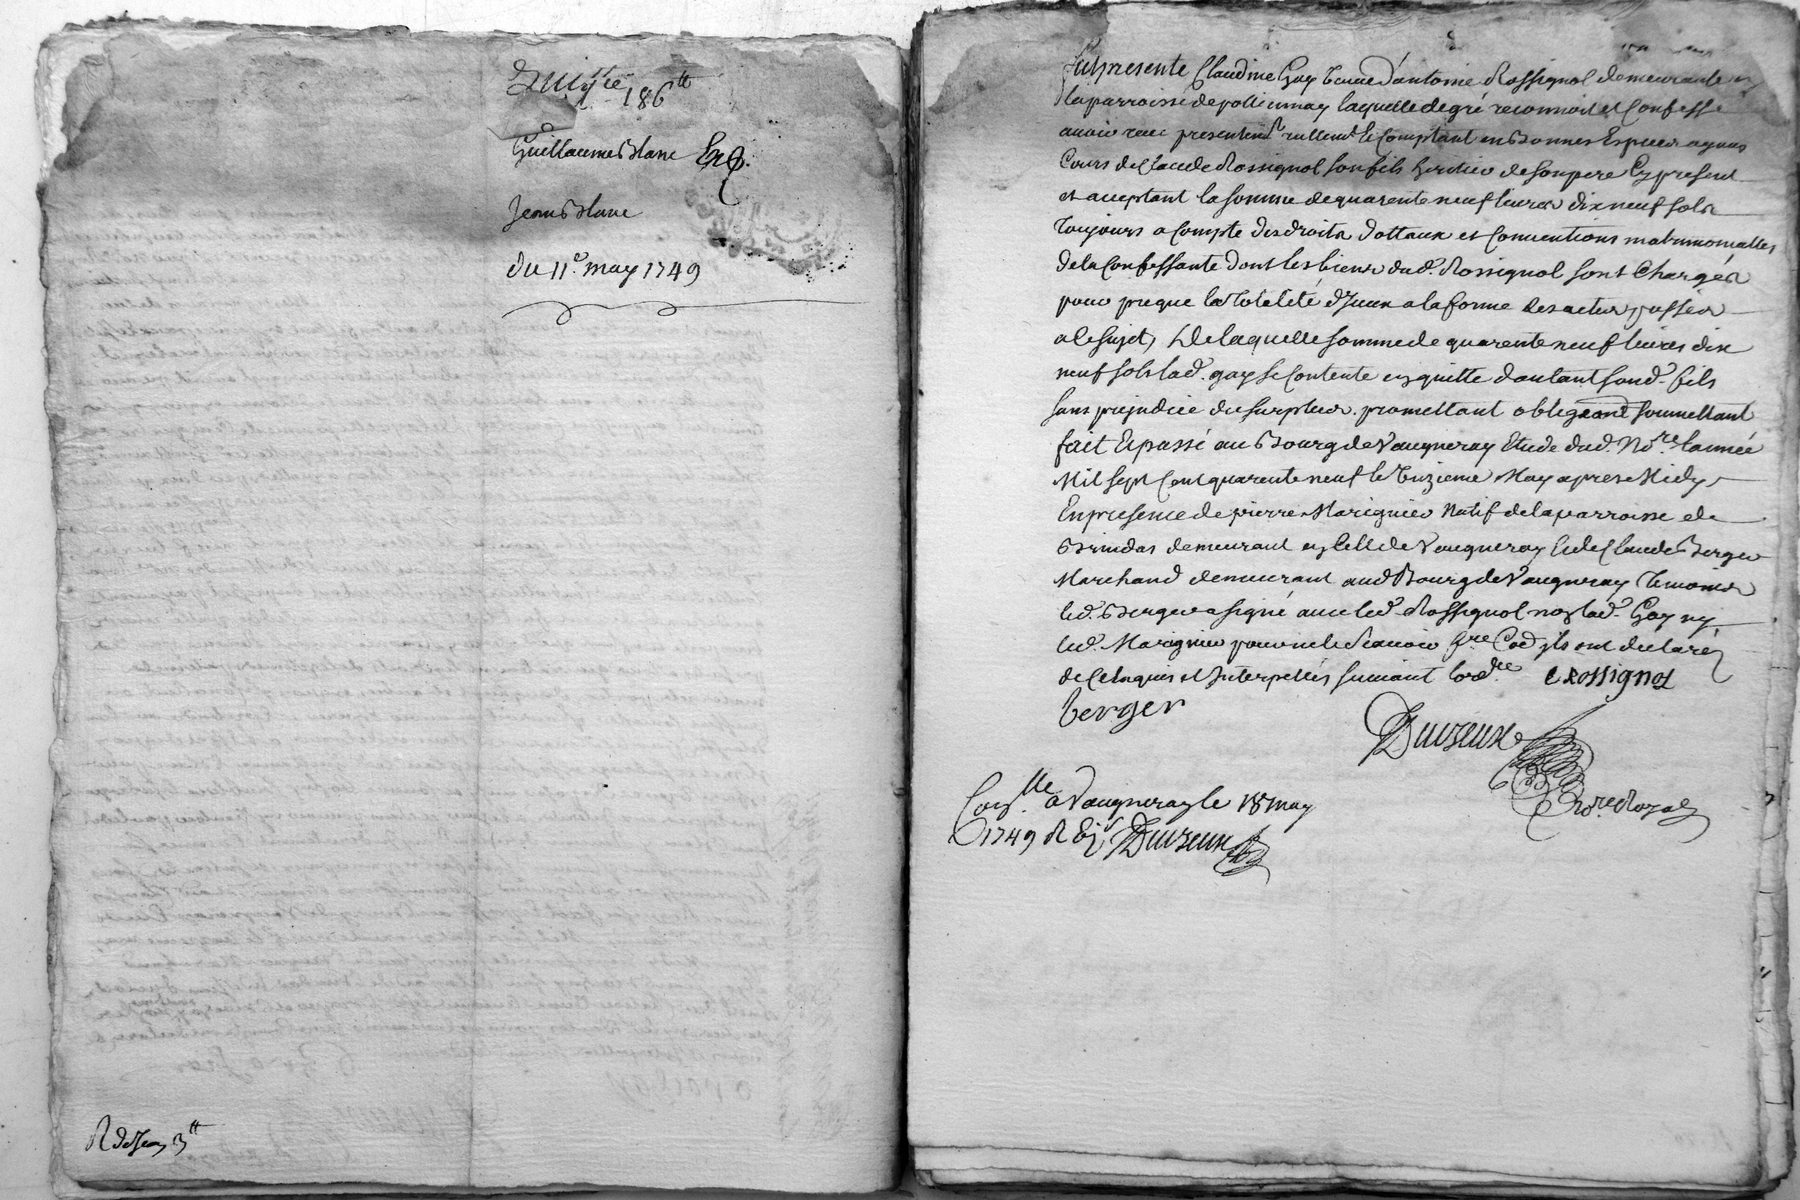 Quitte 186 tt
Guillaume Blanc
Jean Blanc
du 11e. may 1749
R de Jean 3 tt
fut presente Claudine Gay veuve d'antoine Rossignol demeurante en
la parroisse de pollionnay laquelle de gré reconnoit et Confesse
avoir receu presentemt reellemt et Comptant en Bonnes Especes ayans
Cours de Claude Rossignol son fils heritier de son pere Cy present
et acceptant la somme de quarente neuf livres dix neuf sols
Toujours a Compte des droits dottaux et Conventions matrimonialles
de la Confessante dont les biens dud. Rossignol sont Chargés
pour presque la Totalité d'Iceux a la forme des actes passés
a le sujet, De laquelle somme de quarente neuf livres dix
neuf sols lad. gay se Contente en quitte d'autant sond. fils
sans prejudice du surplus. promettant obligeant soumettant
fait Et passé au Bourg de Vaugneray Etude dud. No.re l'année
Mil sept Cent quarente neuf le onzieme May apres Midy
En presence de pierre Marignier Natif de la parroisse de
Brindas demeurant en Celle de Vaugneray Et de Claude Berger
Marchand demeurant aud Bourg de Vaugneray Temoins
led. Berger a signé avec led. Rossignol non lad. Gay ny
led. Marignier pour ne le sçavoir ils ont declaré
de Ce Enquis et Interpellés suivant l'ord.ce C ROSSIGNOL
berger
Duvzeux
No.re Royal
Con.lle a Vaugneray le 18 may
1749 R Duvzeux